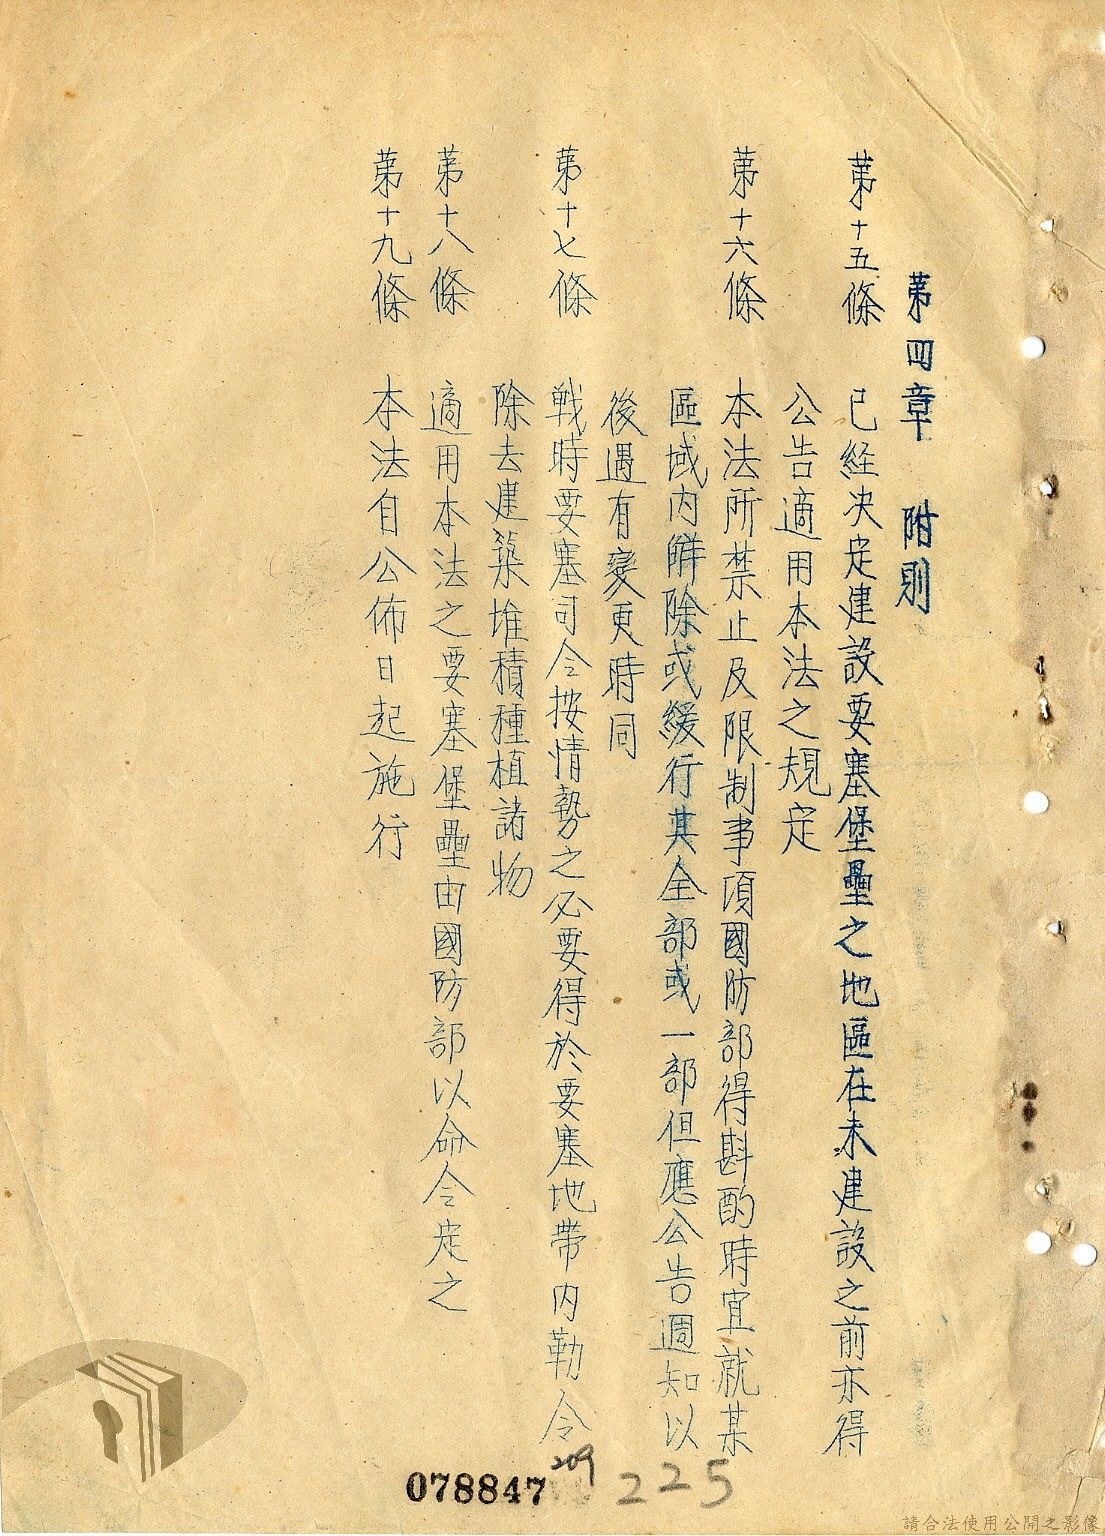 第四章　附則
第十五條　已経決定建設要塞堡壘之地區在未建設之前亦得
公告適用本法之規定
第十六條　本法所禁止及限制事項國防部得斟酌時宜就某
區域内解除或緩行其全部或一部但應公告週知以
後遇有變更時同
第十七條　戦時要塞司令按情勢之必要得於要塞地帶内勒令
除去建築堆積種植諸物
第十八條　適用本法之要塞堡壘由國防部以命令定之
第十九條　本法自公佈日起施行
078847
209
225
請合法使用公開之影像